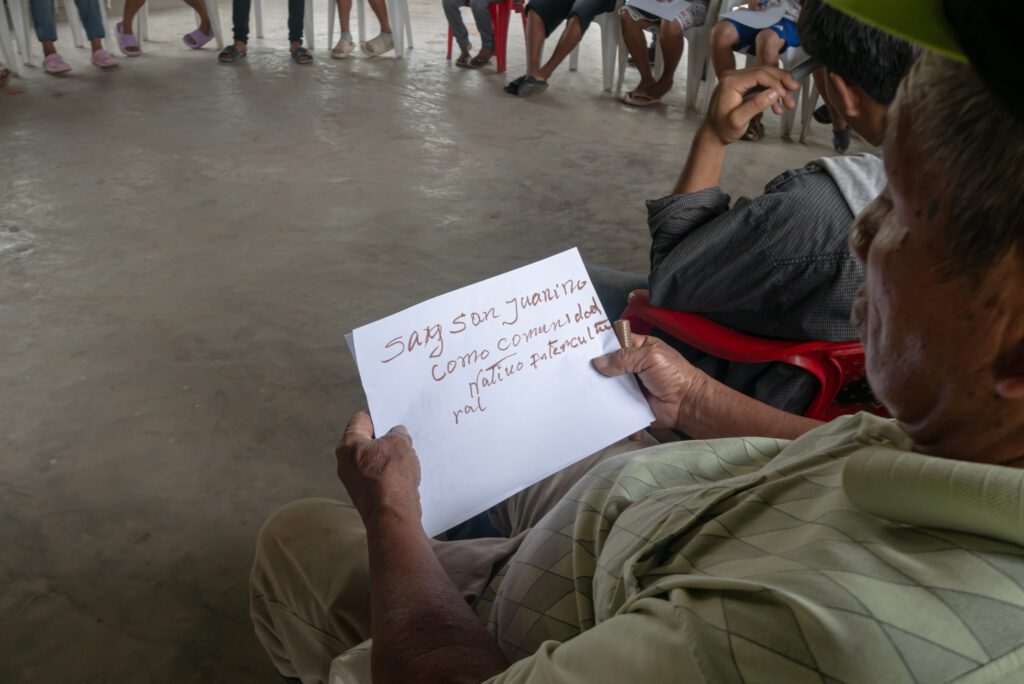 Satg san Juanino
como comunidad
Nativo intercultu
ral